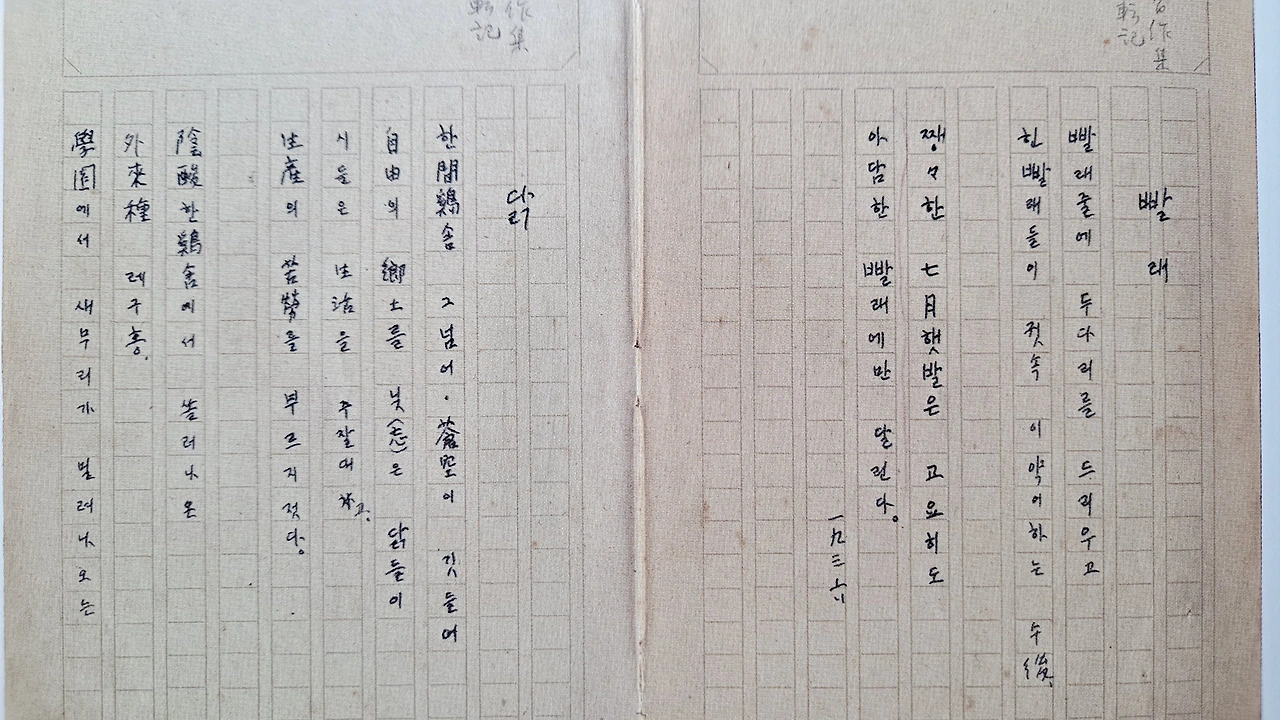 빨래
빨래줄에 두다리를 드리우고
힌 빨래들이 귓속 이약이하는 午後,
쨍々한 七月햇발은 고요히도
아담한 빨래에만 달린다。
一九三六
닭
한間鷄舍 그넘어・蒼空이 깃들어
自由의 鄕土를 닞(忘)은 닭들이
시들은 生活을 주잘대고,
生産의 苦勞를 부르지젓다。
陰酸한 鷄舍에서 쏠려나온
外來種 레구홍,
學園에서 새무리가 밀려나오는